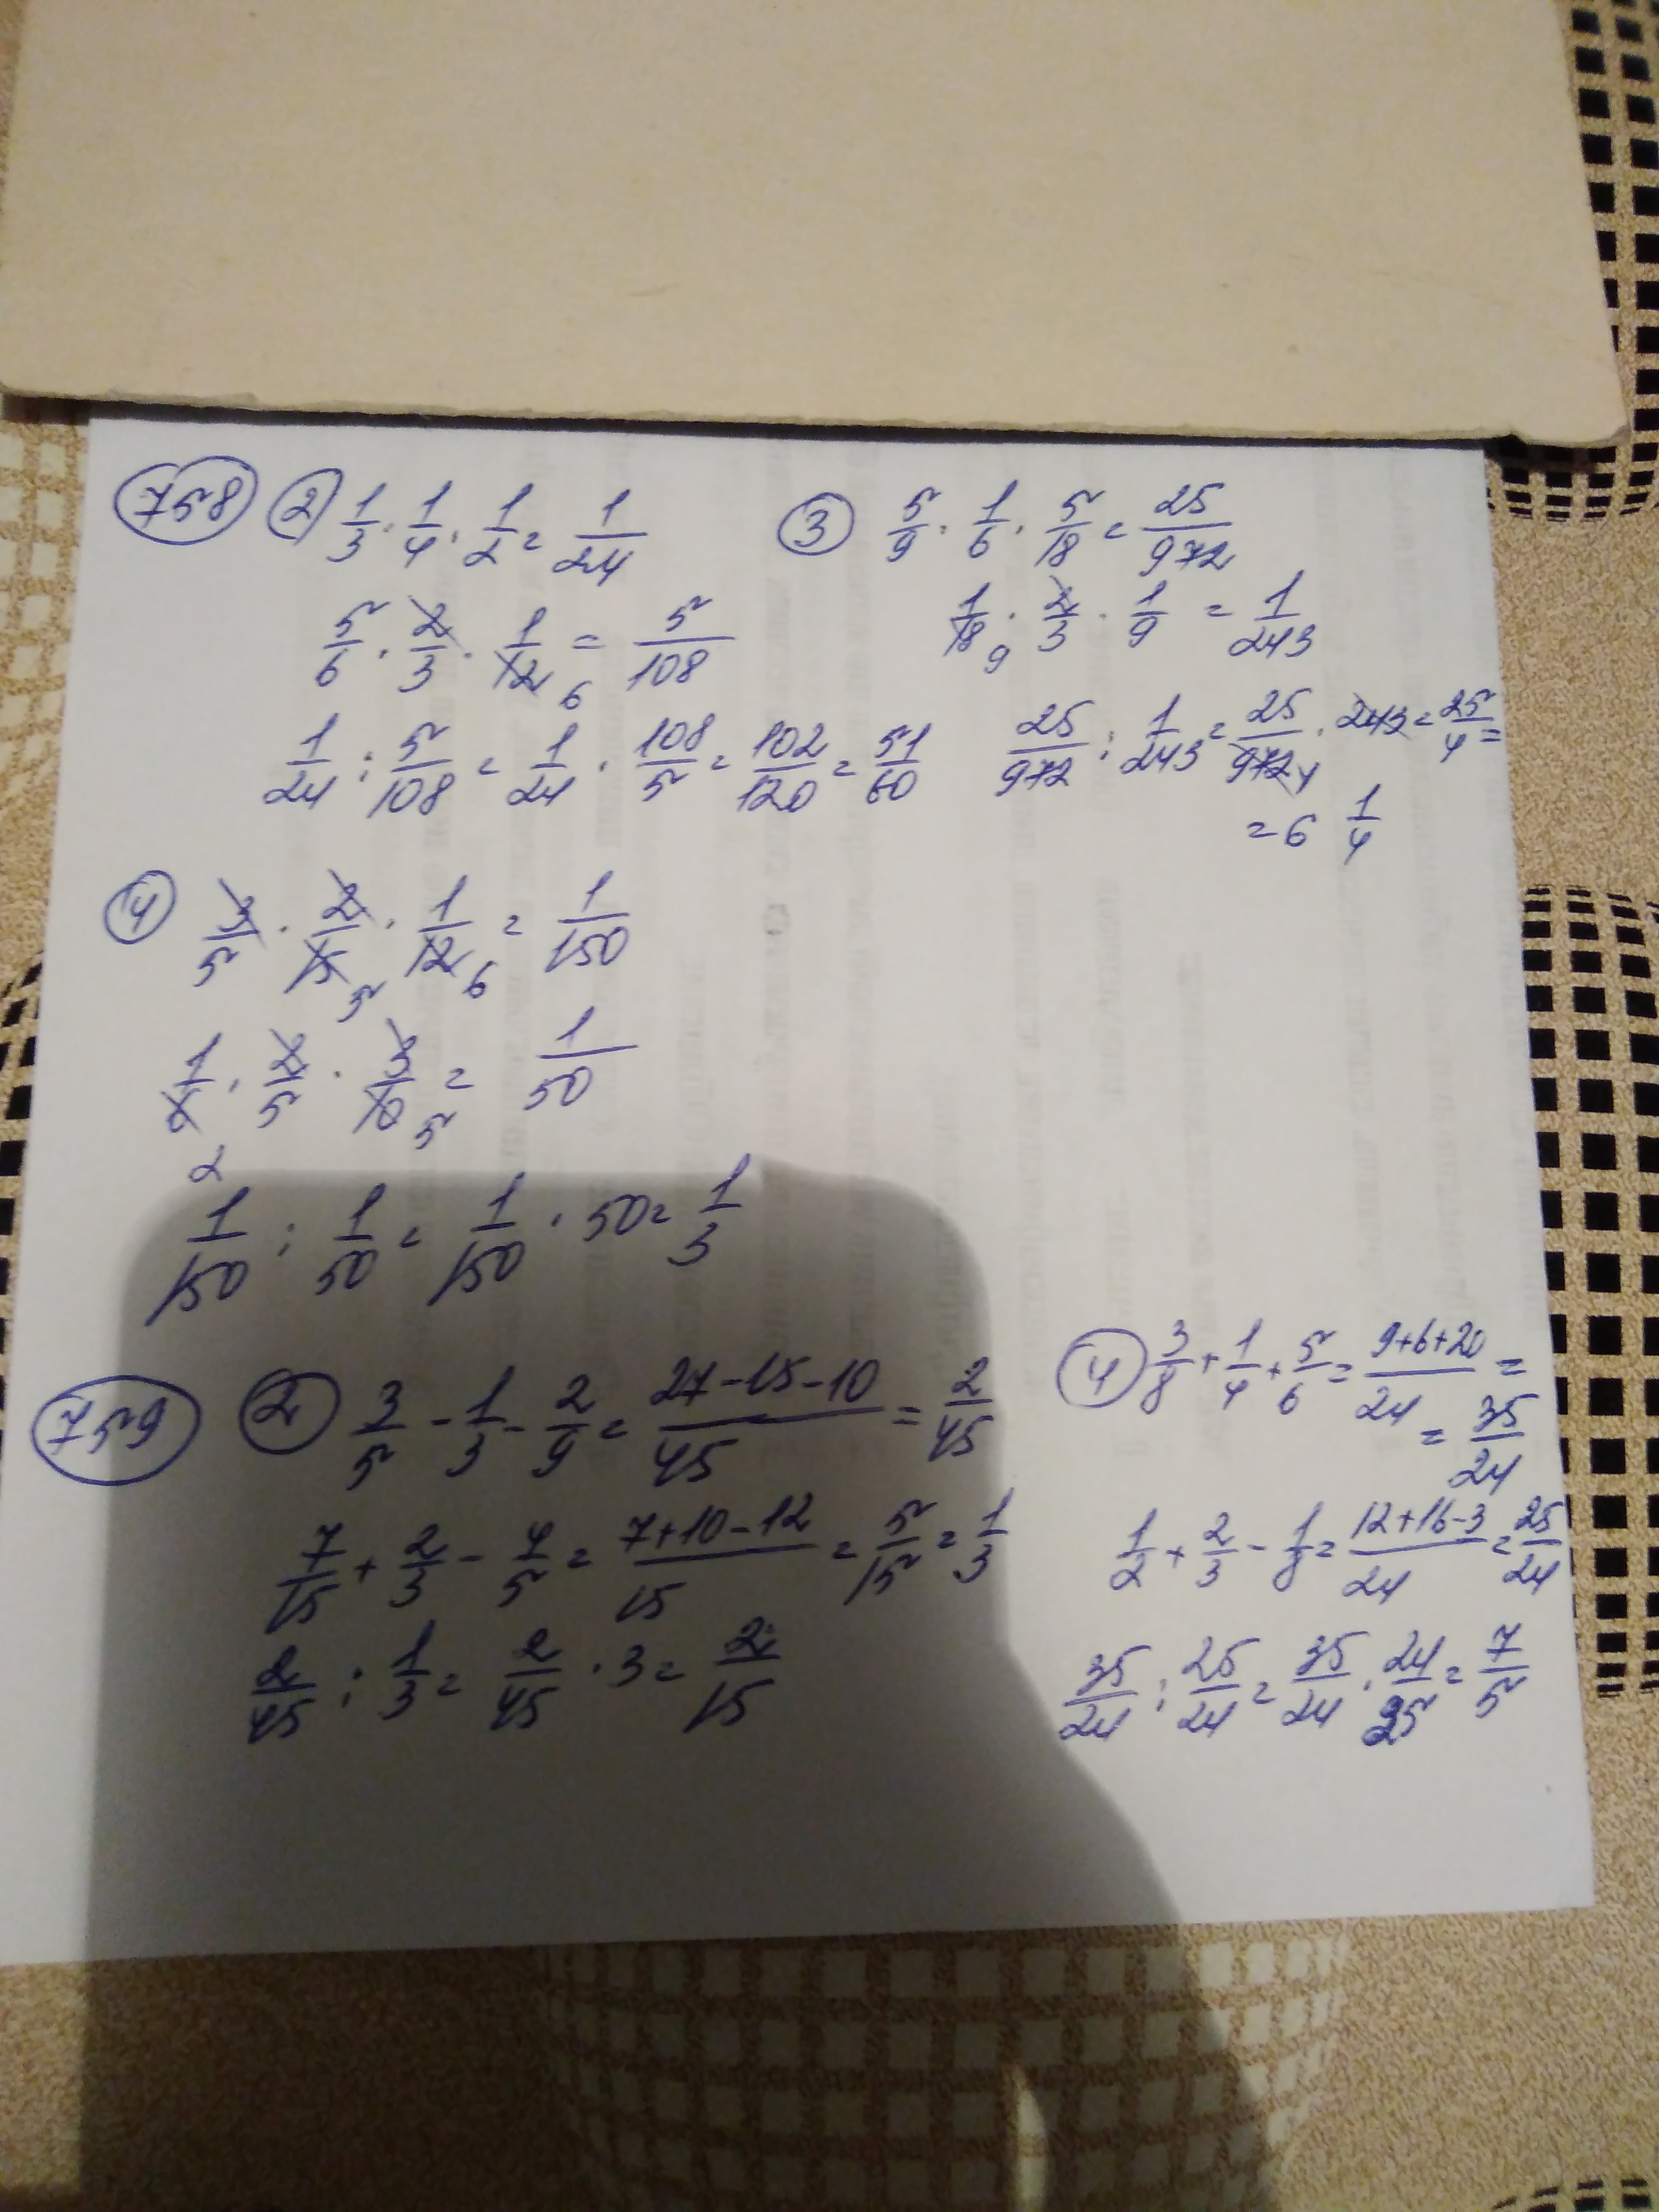 758 2 1/3 · 1/4 · 1/2 = 1/24
5/6 · 2/3 · 1/12 6 = 5/108
1/24 : 5/108 = 1/24 · 108/5 = 102/120 = 51/60
3 5/9 · 1/6 · 5/18 = 25/972
1/18 9 · 2/3 · 1/9 = 1/243
25/972 : 1/243 = 25/972 4 · 243 = 25/4 =
= 6 1/4
4 3/5 · 2/15 5 · 1/12 6 = 1/150
1/6 2 · 2/5 · 3/10 5 = 1/50
1/150 : 1/50 = 1/150 · 50 = 1/3
759 2 3/5 - 1/3 - 2/9 = 27-15-10/45 = 2/45
7/15 + 2/3 - 4/5 = 7+10-12/15 = 5/15 = 1/3
2/45 : 1/3 = 2/45 · 3 = 2/15
4 3/8 + 1/4 + 5/6 = 9+6+20/24 =
= 35/24
1/2 + 2/3 - 1/8 = 12+16-3/24 = 25/24
35/24 : 25/24 = 35/24 · 24/25 = 7/5